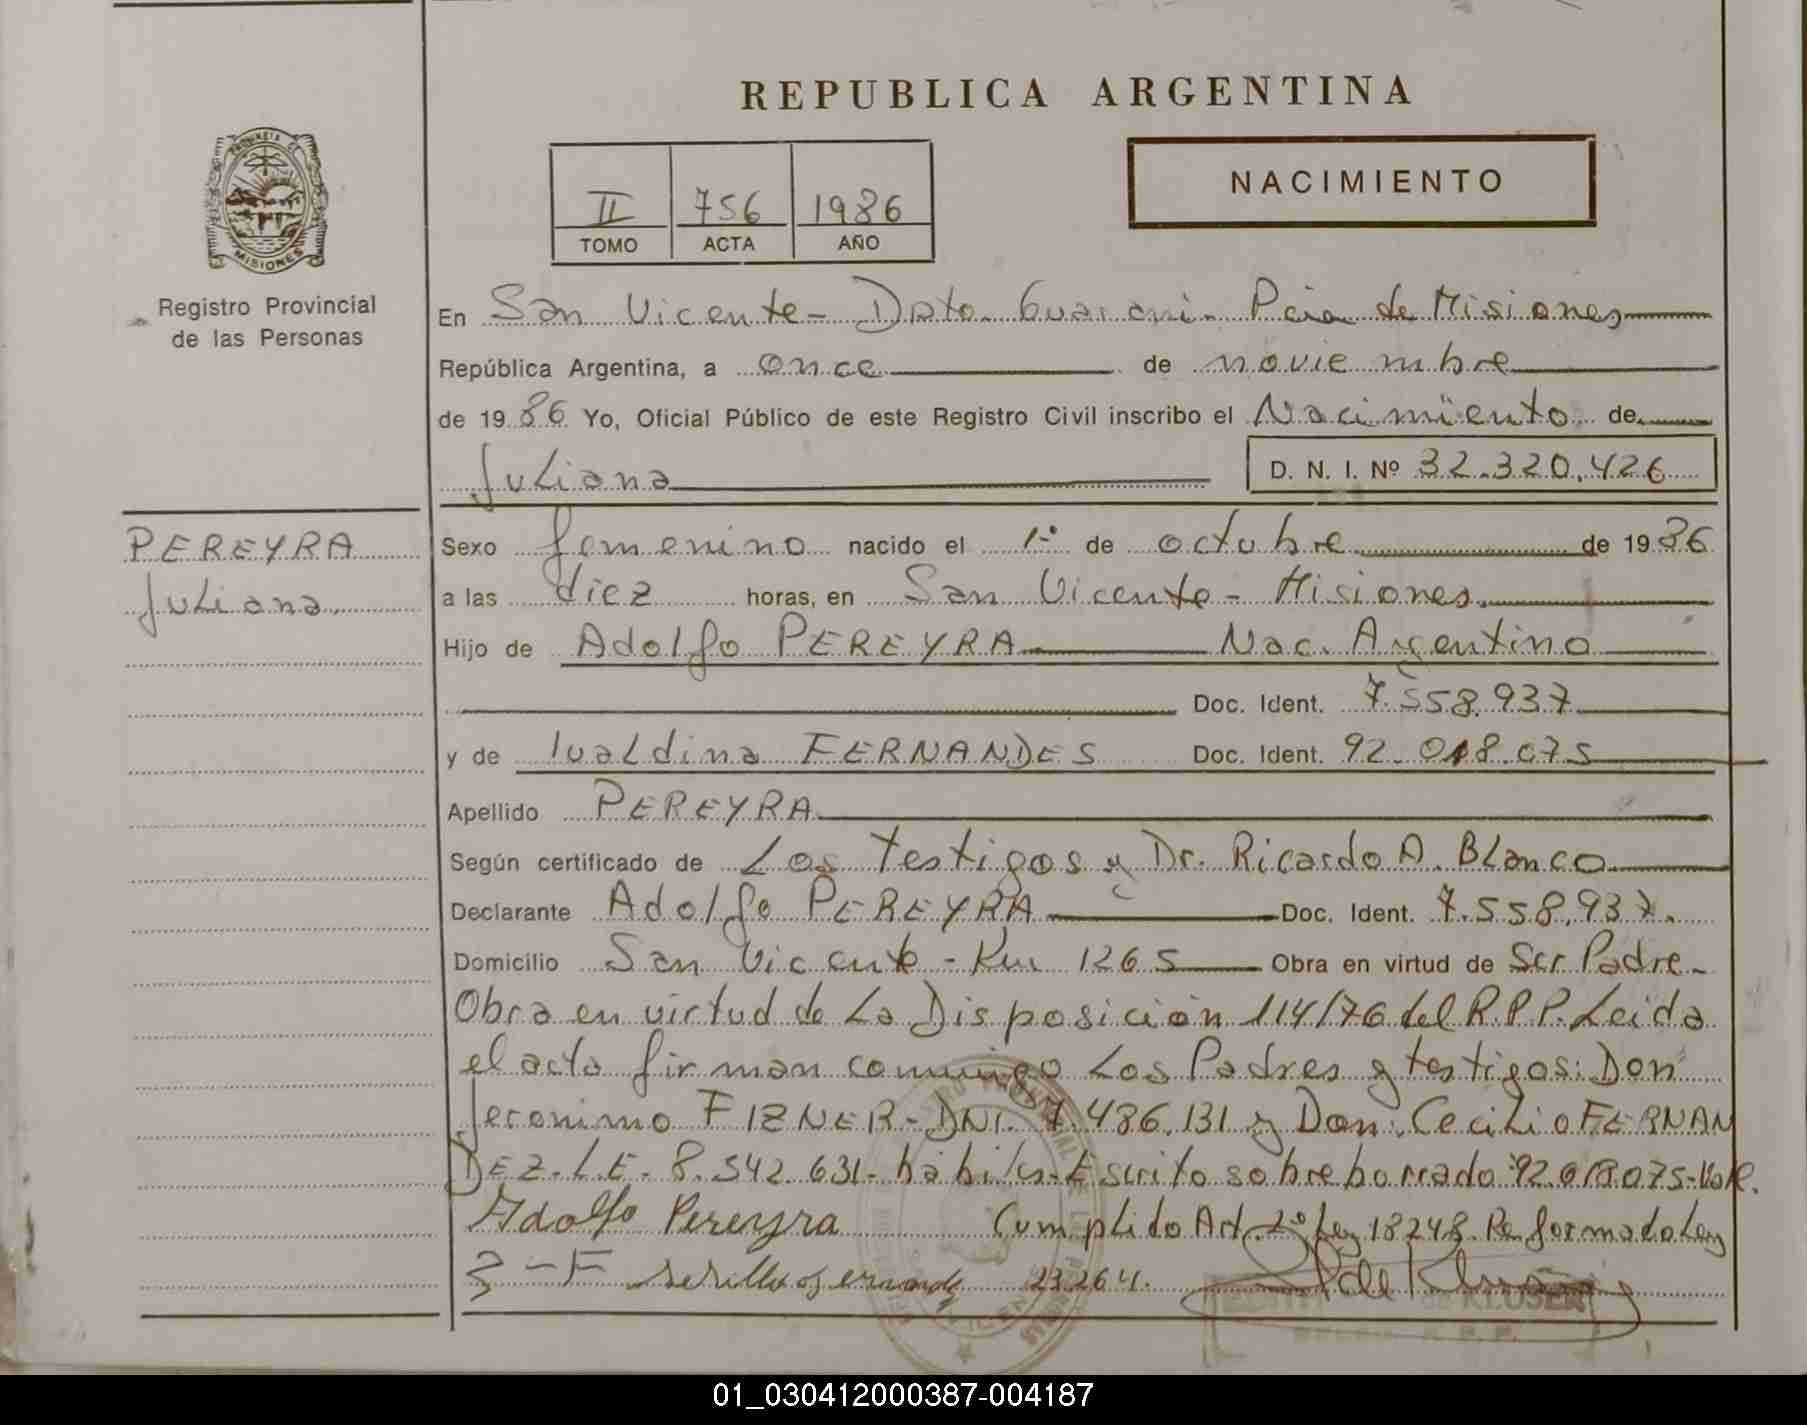 REPUBLICA ARGENTINA
PROVINCIA DE
MISIONES
Registro Provincial
de las Personas
II 756 1986
TOMO ACTA AÑO
NACIMIENTO
En San Vicente - Dpto. Guarani. Pcia de Misiones
República Argentina, a once de noviembre
de 1986 Yo, Oficial Público de este Registro Civil inscribo el Nacimiento de
Juliana D. N. I. Nº 32.320.426
PEREYRA
Juliana.
Sexo femenino nacido el 1º de octubre de 1986
a las diez horas, en San Vicente - Misiones.
Hijo de Adolfo PEREYRA Nac. Argentino
Doc. Ident. 7.558.937
y de Ivaldina FERNANDES Doc. Ident. 92.018.075
Apellido PEREYRA
Según certificado de Los testigos y Dr. Ricardo A. Blanco
Declarante Adolfo PEREYRA Doc. Ident. 7.558.937.
Domicilio San Vicente - Km 1265 Obra en virtud de Ser Padre-
Obra en virtud de La Disposición 114/76 del R.P.P. Leida
el acta firman conmigo Los Padres y testigos: Don
Jeronimo FIZNER - DNI. 7.486.131 y Don Cecilio FERNAN
DEZ - L.E. - 8.542.631 - hábiles - Escrito sobre borrado: 92.018.075 - Vale.
Adolfo Pereyra Cumplido Art. 2º Ley 18248. Reformado Ley
Z - F 23264.
de KLUSEN
01_030412000387-004187